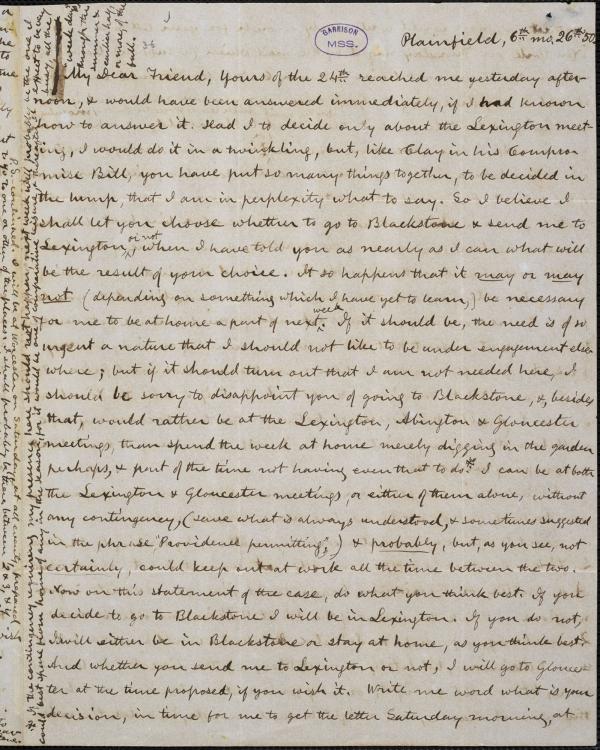 GARRISON
MSS.
36
Plainfield, 6th mo, 26th 50,
My Dear Friend, Yours of the 24th reached me yesterday after-
noon, & would have been answered immediately, if I had known
how to answer it. Had I to decide only about the Lexington meet-
ing, I would do it in a twinkling, but, like Clay in his Compro
mise Bill, you have put so many things together, to be decided in
the lump, that I am in perplexity what to say. So I believe I
shall let you choose whether to go to Blackstone & send me to
Lexington, or not, when I have told you as nearly as I can what will
be the result of your choice. It so happens that it may or may
not (depending on something which I have yet to learn,) be necessary
for me to be at home a part of next week. If it should be, the need is of so
urgent a nature that I should not like to be under engagement else
where; but if it should turn out that I am not needed here, I
should be sorry to disappoint you of going to Blackstone, &, besides
that, would rather be at the Lexington, Abington & Gloucester
meetings, than spend the week at home merely digging in the garden
perhaps, & part of the time not having even that to do. I can be at both
the Lexington & Gloucester meetings, or either of them alone, without
any contingency, (save what is always understood, & sometimes suggested
in the phrase "Providence permitting",) & probably, but, as you see, not
certainly, could keep out at work all the time between the two.
Now on this statement of the case, do what you think best. If you
decide to go to Blackstone I will be in Lexington. If you do not,
I will either be in Blackstone or stay at home, as you think best.
And whether you send me to Lexington or not, I will go to Glouces-
ter at the time proposed, if you wish it. Write me word what is your
decision, in time for me to get the letter Saturday morning, at